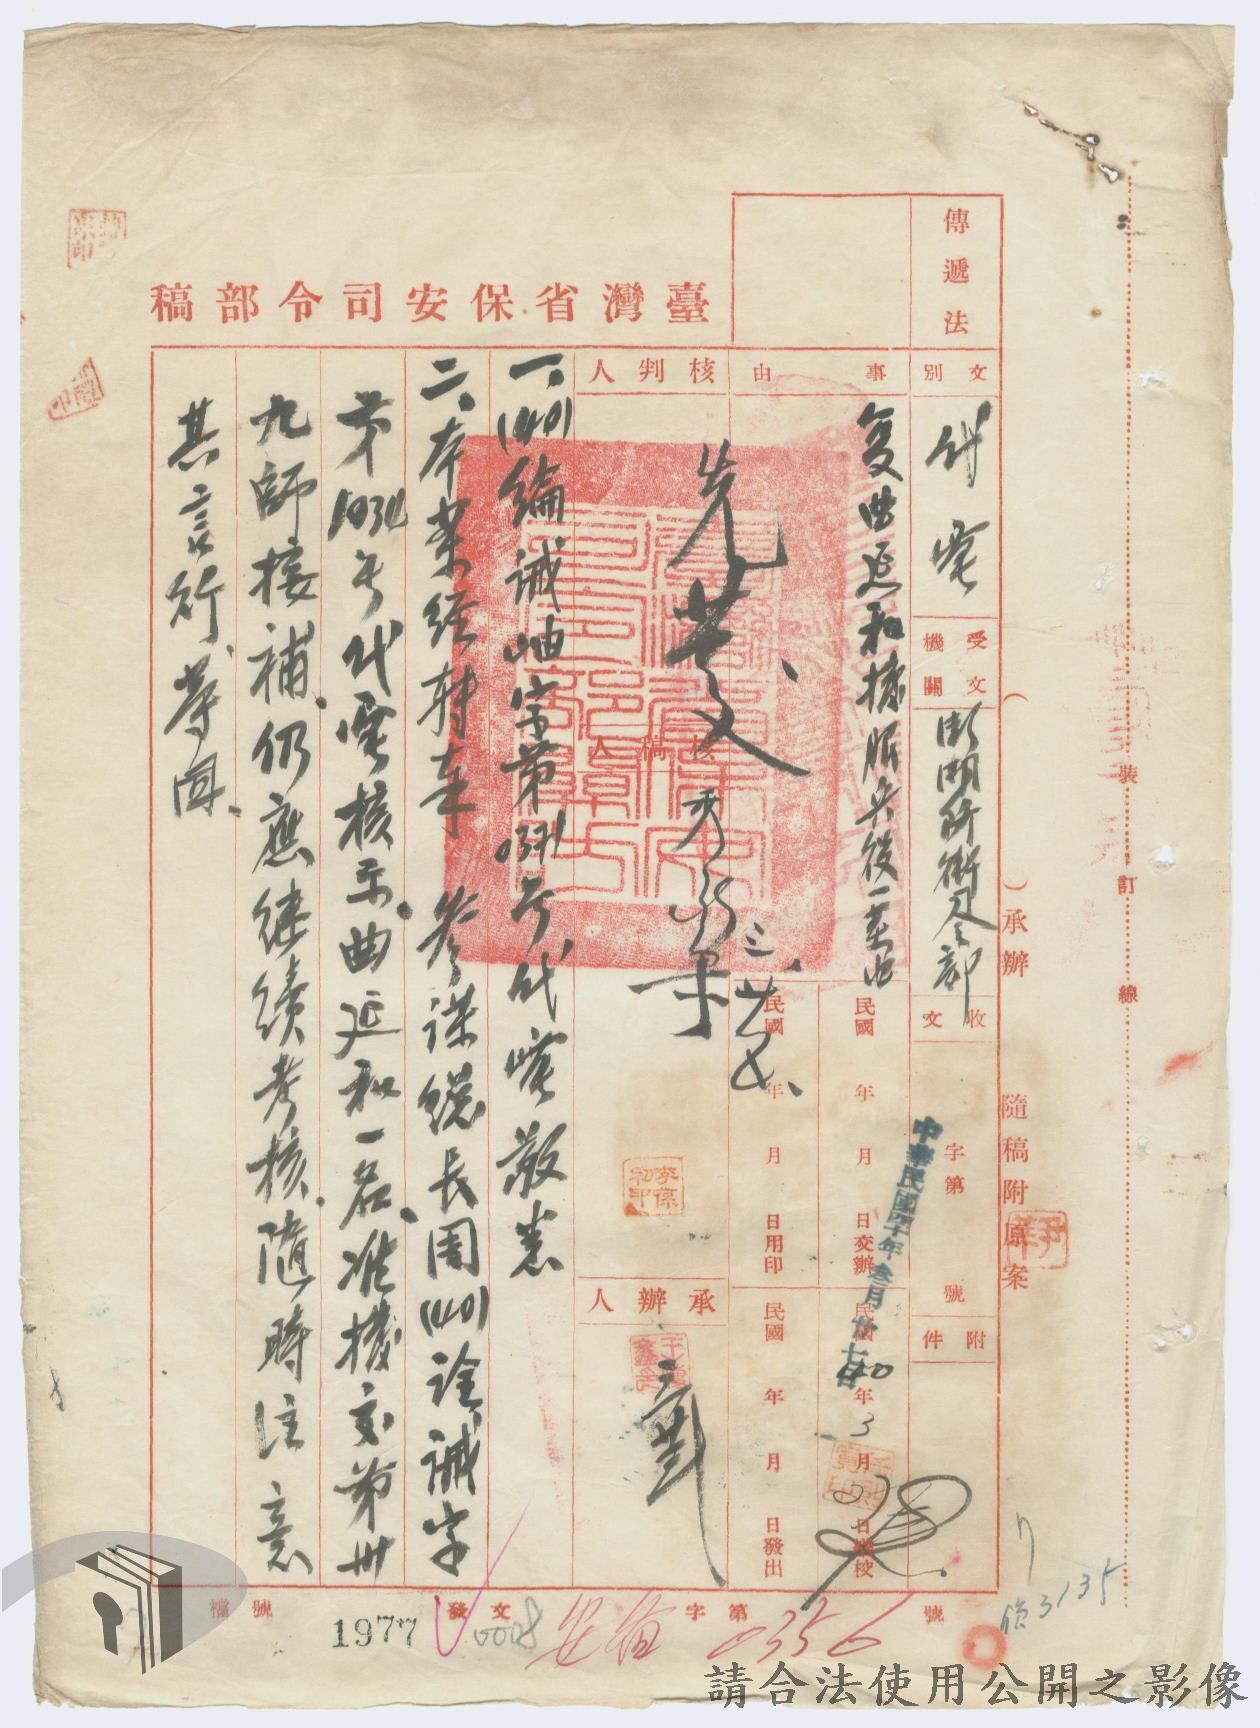 臺灣省保安司令部稿
傳遞法
文別
代電
受文機關
澎湖防衛司令部
收文
字第
號
附件
事由
復曲延和撥服兵役一案由
民國 年 月 日交辦
中華民國四十年叁月廿七日
民國40年3月
民國 年 月 日用印
民國 年 月 日發出
核判人
核稿人
承辦人
一、(40)綸誠岫字第0371號代電敬悉
二、本案經轉奉 參謀總長周(40)詮誠字
第1034号代電核示、曲延和一名、准撥交第卅
九師接補、仍應繼續考核、隨時注意
其言行、等因、
承辦
隨稿附原案
裝
訂
線
檔號
1977
發文
0008
字第0356號
3135
請合法使用公開之影像